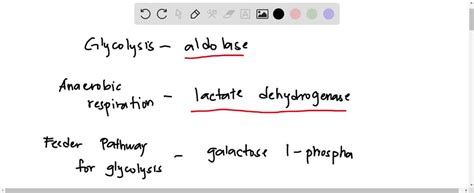 Glycolysis - aldolase
Anaerobic
respiration - lactate dehydrogenase
Feeder Pathway
for glycolysis - galactose 1-phospha